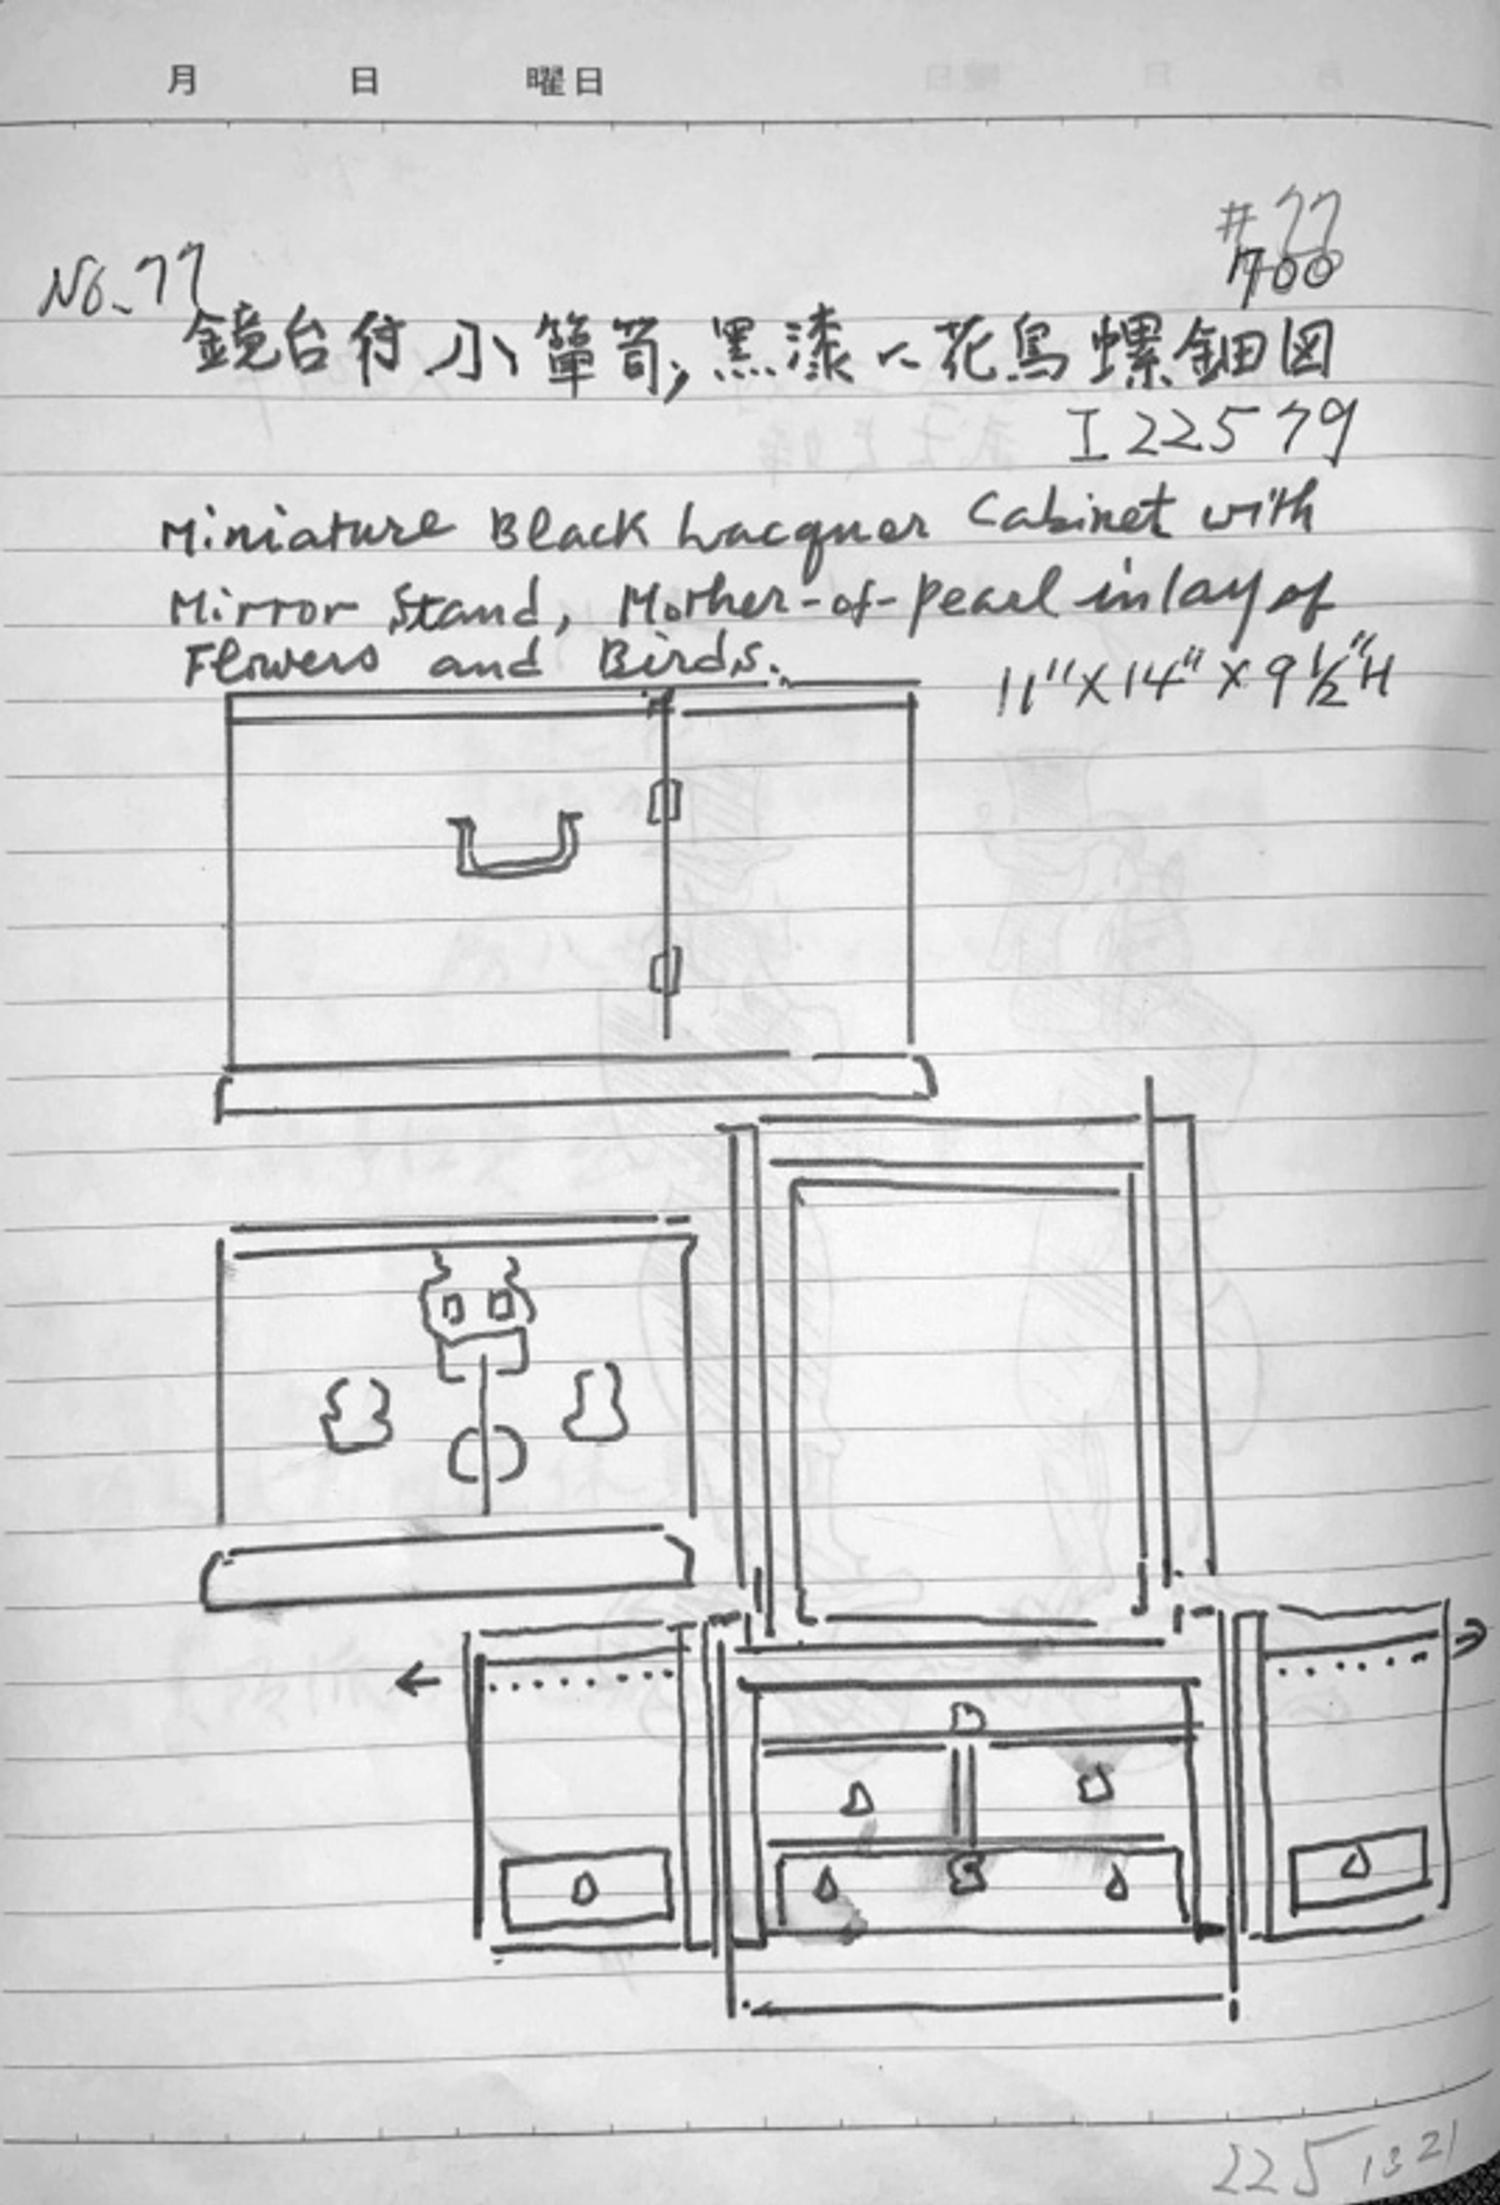 月 日 曜日
#77
No. 77
700
鏡台付小簞笥,黒漆ヘ花鳥螺鈿図
I22579
Miniature Black Lacquer Cabinet with
Mirror Stand, Mother-of-pearl inlay of
Flowers and Birds.
11"X14"X9½"H
225 1321